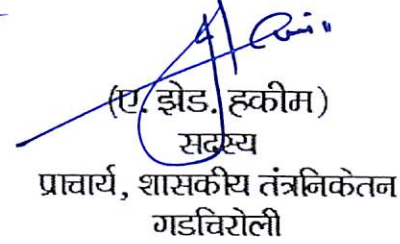 (ए. झेड. हकीम)
सदस्य
प्राचार्य, शासकीय तंत्रनिकेतन
गडचिरोली